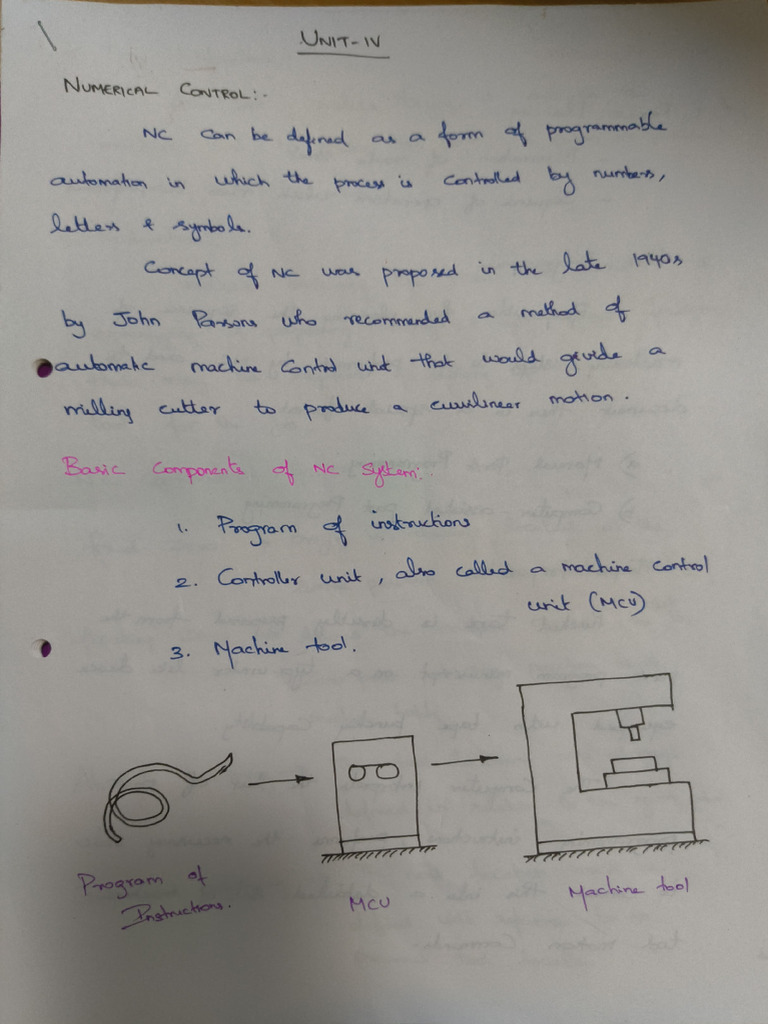 UNIT-IV
NUMERICAL CONTROL:-
NC can be defined as a form of programmable
automation in which the process is controlled by numbers,
letters & symbols.
Concept of NC was proposed in the late 1940s
by John Parsons who recommended a method of
automatic machine control unit that would gevide a
milling cutter to produce a curvilinear motion.
Basic Components of NC System:-
1. Program of instructions
2. Controller unit, also called a machine control
unit (MCU)
3. Machine tool.
Program of
Instructions.
MCU
Machine tool